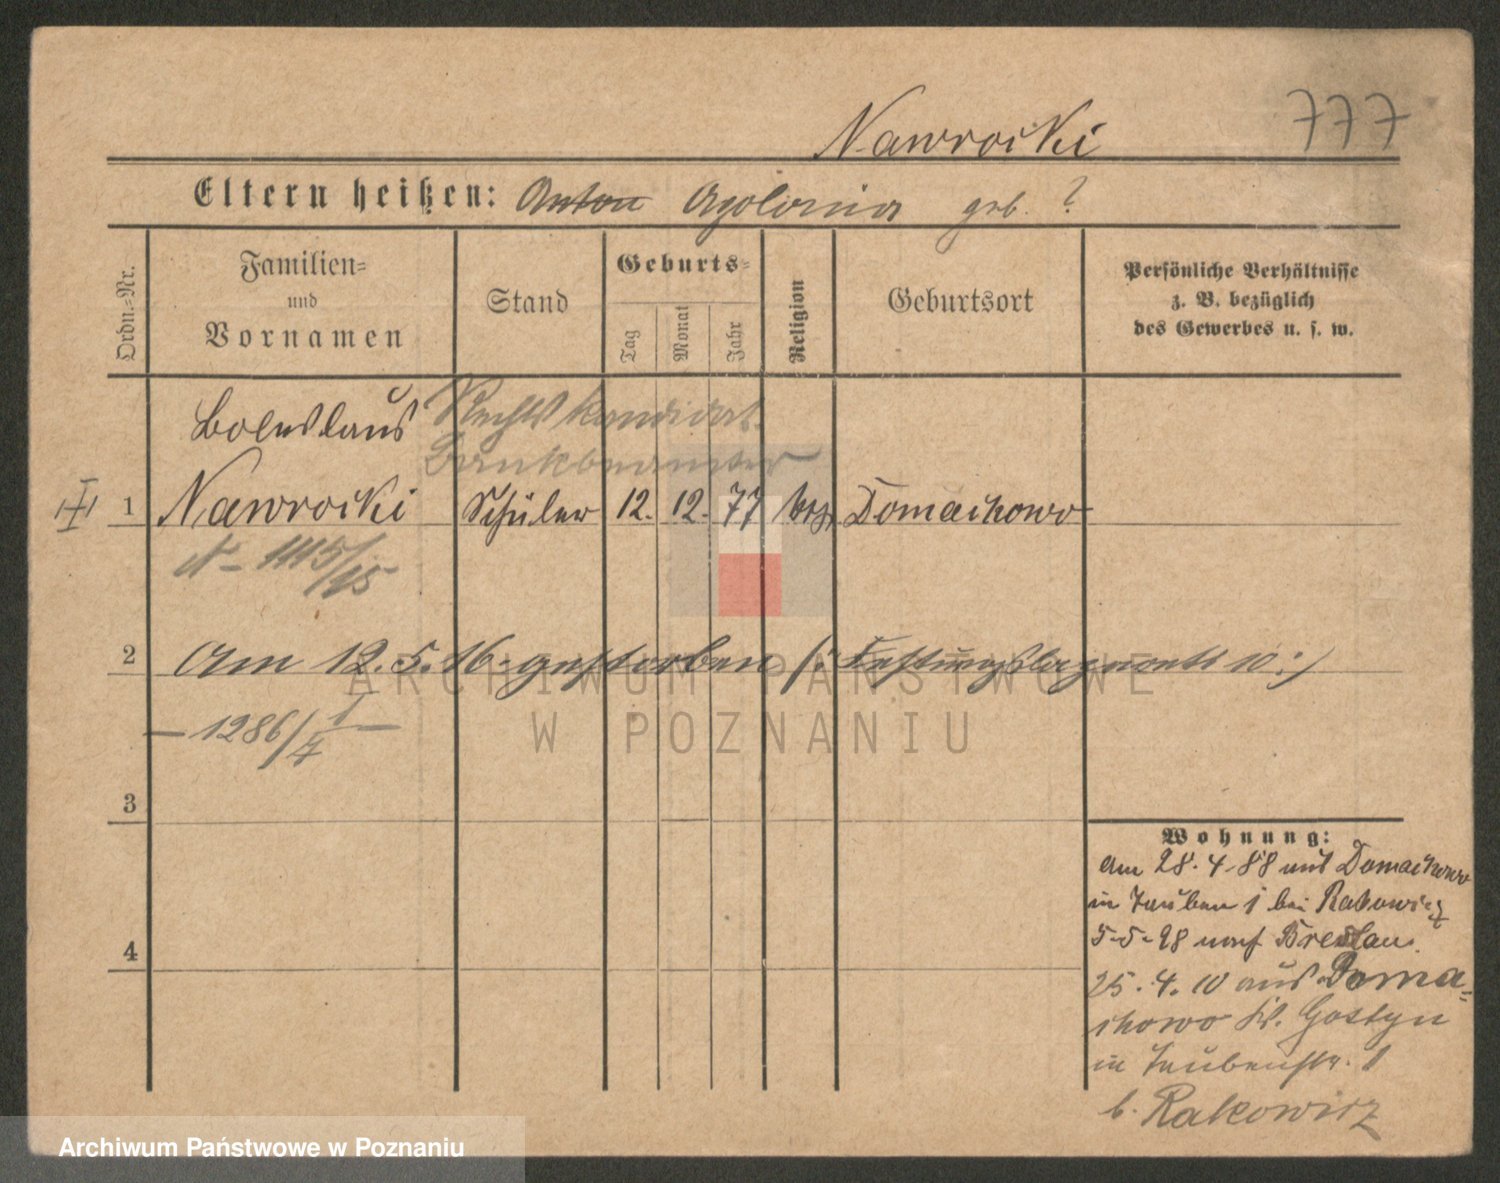 777
Nawrocki
Eltern heißen: Anton Apolonia geb. ?
Ordn.=Nr.
Familien=
und
Vornamen
Stand
Geburts=
Tag
Monat
Jahr
Religion
Geburtsort
Persönliche Verhältnisse
z. B. bezüglich
des Gewerbes u. s. w.
Boleslaus Rechtskandidat
Bankbeamter
1 Nawrocki Schüler 12. 12. 77 Domachowo
N- 1115/15
2 Am 12. 5. 16 gestorben (: Festungslazarett 10 :)
- 1286/ I -
3
Wohnung:
am 28.4.88 aus Domachowo
in Tauben 1 bei Rakowicz
5.5.98 nach Breslau.
4
25.4.10 aus Doma=
chowo Kr. Gostyn
in Taubenstr. 1
b. Rakowicz
ARCHIWUM PAŃSTWOWE
W POZNANIU
Archiwum Państwowe w Poznaniu